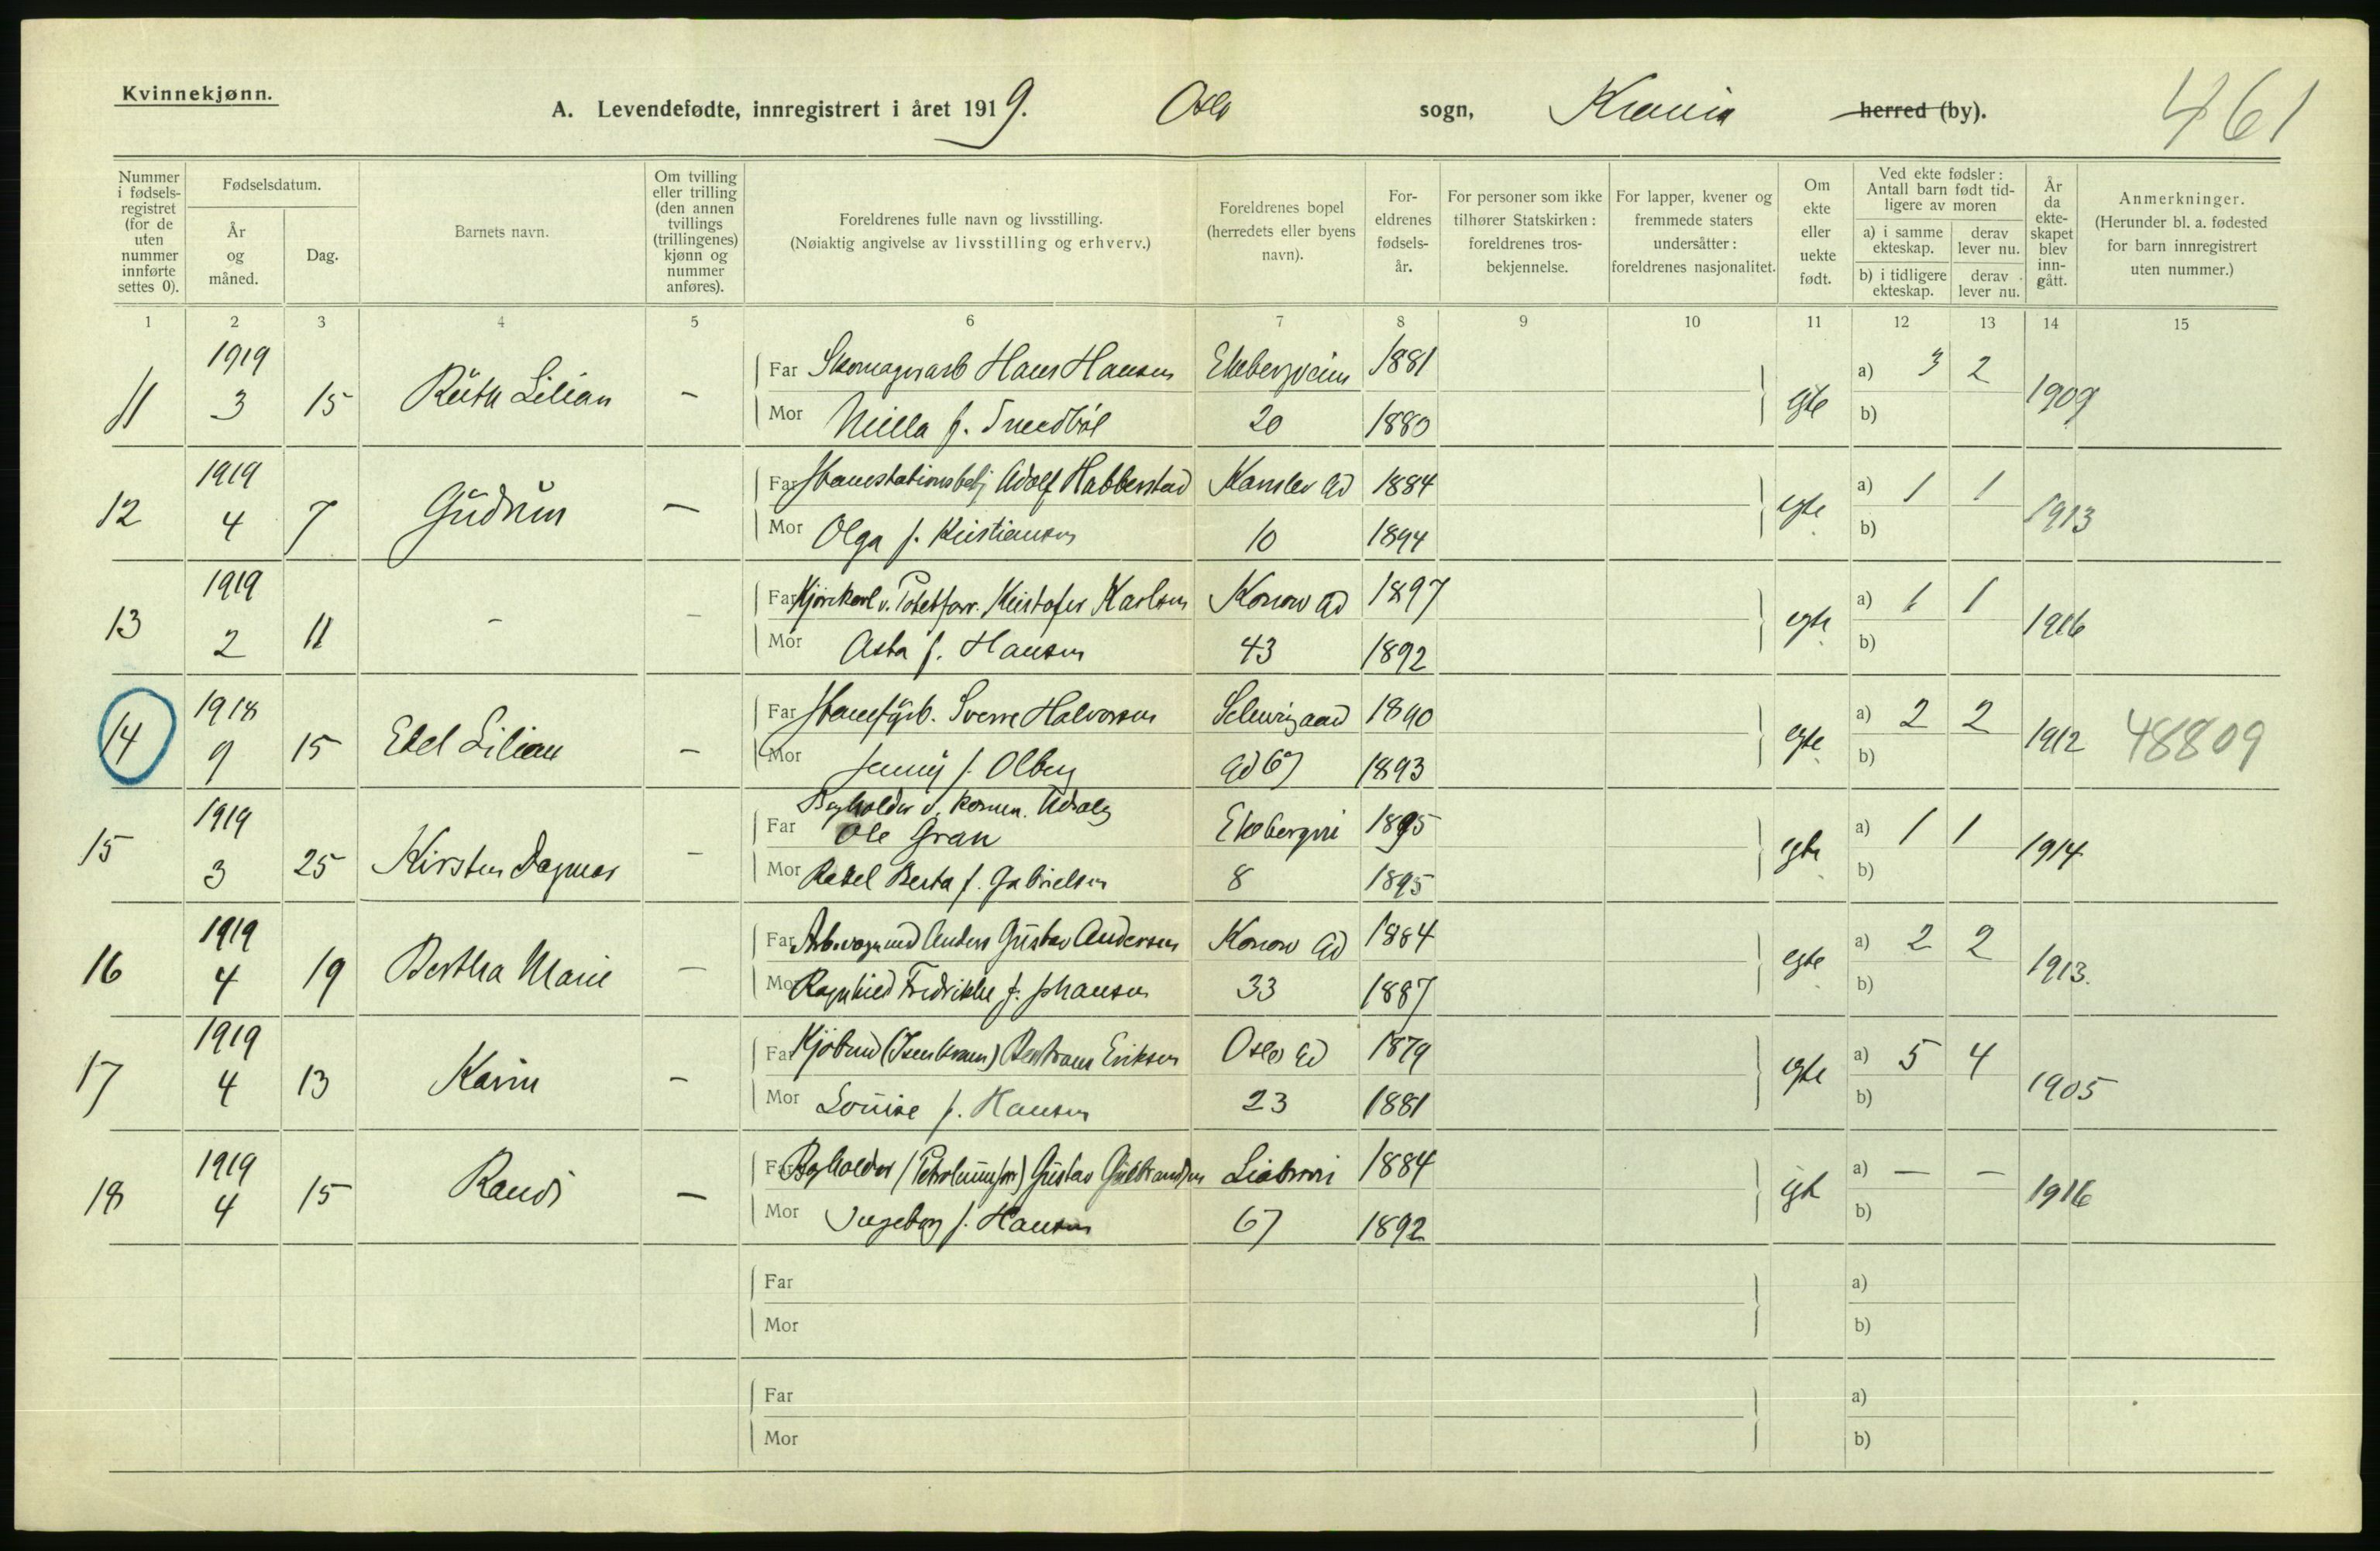 Kvinnekjønn.
A. Levendefødte, innregistrert i året 1919. Oslo sogn, Krania herred (by). 461
Nummer i fødsels-registret (for de uten nummer innførte settes 0).
Fødselsdatum.
År og måned.
Dag.
Barnets navn.
Om tvilling eller trilling (den annen tvillings (trillingenes) kjønn og nummer anføres).
Foreldrenes fulle navn og livsstilling.
(Nøiaktig angivelse av livsstilling og erhverv.)
Foreldrenes bopel (herredets eller byens navn).
For-eldrenes fødsels-år.
For personer som ikke tilhører Statskirken: foreldrenes tros-bekjennelse.
For lapper, kvener og fremmede staters undersåtter: foreldrenes nasjonalitet.
Om ekte eller uekte født.
Ved ekte fødsler: Antall barn født tid-ligere av moren
a) i samme ekteskap.
derav lever nu.
b) i tidligere ekteskap.
derav lever nu.
År da ekte-skapet blev inn-gått.
Anmerkninger.
(Herunder bl. a. fødested for barn innregistrert uten nummer.)
1 2 3 4 5 6 7 8 9 10 11 12 13 14 15
11 1919 3 15 Ruth Lilian - Far Skomagerarb Hans Hansen Ekebergveien 1881 egte a) 3 2 1909
Mor f. 20 1880 b)
12 1919 4 7 Gudrun - Far Adolf Habberstad Kansler gd 1884 egte a) 1 1 1913
Mor Olga f. Kristiansen 10 1894 b)
13 1919 2 11 - - Far Kjørekarl v. Potetforr. Kristofer Karlsen Konow gd 1897 egte a) 1 1 1916
Mor Asta f. Hansen 43 1892 b)
14 1918 9 15 Edel Lilian - Far Sverre Halvorsen Schweigaard 1890 egte a) 2 2 1912 48809
Mor Jenny f. Olberg gd 67 1893 b)
15 1919 3 25 Kirsten Dagmar - Bogholder v. komm.
Far Ole Gran Ekebergvei 1895 egte a) 1 1 1914
Mor Rakel Berta f. Gabrielsen 8 1895 b)
16 1919 4 19 Bertha Marie - Far Anders Gustav Andersen Konow gd 1884 egte a) 2 2 1913.
Mor Ragnhild Fredrikke f. Johansen 33 1887 b)
17 1919 4 13 Karin - Far Kjøbmd (Isenkram) Bertrans Eriksen Oslo gd 1879 egte a) 5 4 1905
Mor Louise f. Hansen 23 1881 b)
18 1919 4 15 Randi - Far Bogholder (Petroleumsforr) Gustav Gulbrandsen Liabrovei 1884 egte a) - - 1916
Mor Ingeborg f. Hansen 67 1892 b)
Far a)
Mor b)
Far a)
Mor b)